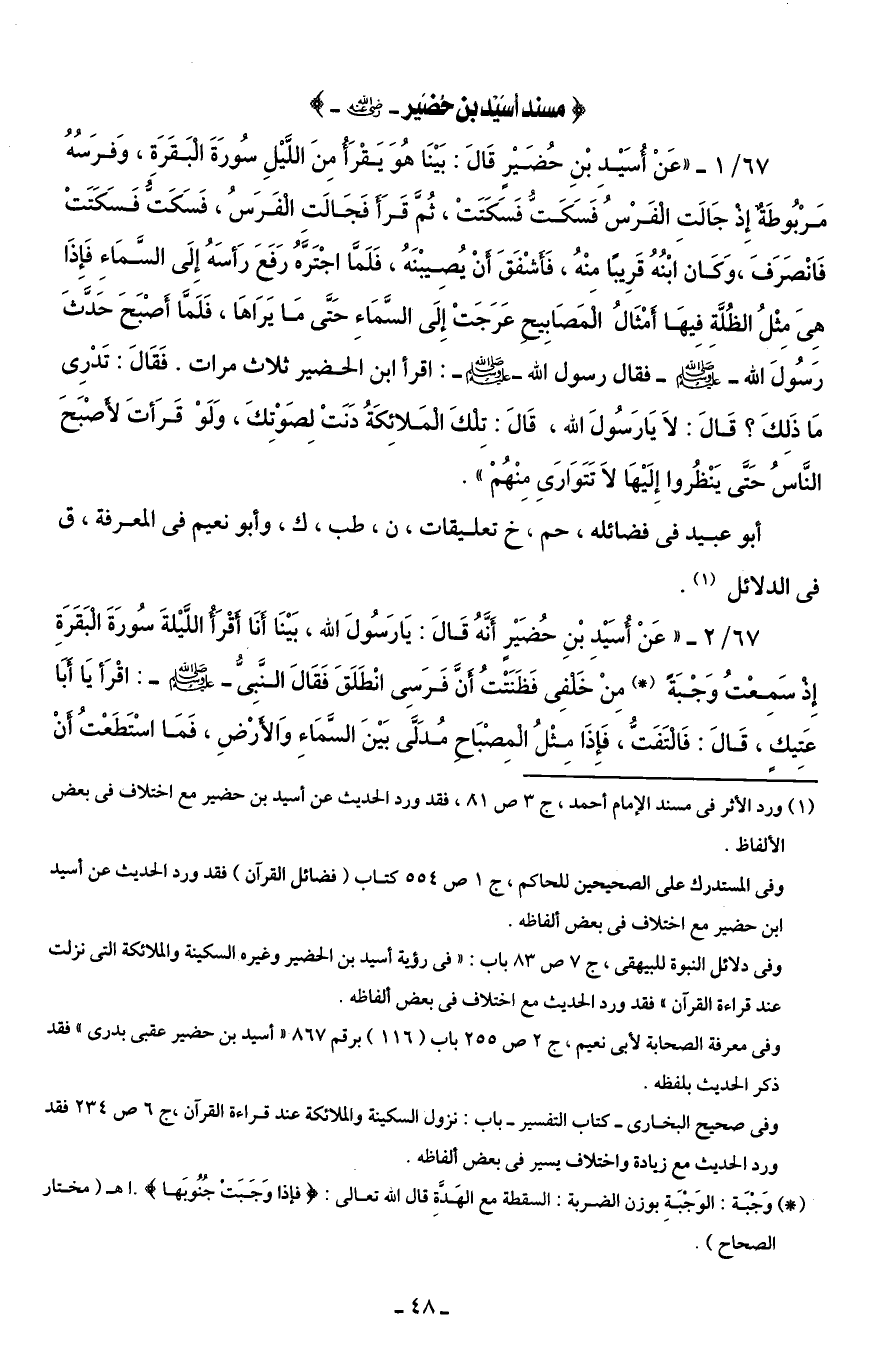 ﴿ مسند أسَيْد بن حُضَير ـ رضي الله عنه ـ ﴾
٦٧/ ١ ـ «عَنْ أُسَيْدِ بْنِ حُضَيْرٍ قَالَ : بَيْنَا هُوَ يَقْرَأُ مِنَ اللَّيْلِ سُورَةَ الْبَقَرَةِ ، وَفَرَسُهُ
مَرْبُوطَةٌ إِذْ جَالَتِ الْفَرَسُ فَسَكَتُّ فَسَكَتَتْ ، ثُمَّ قَرَأَ فَجَالَتِ الْفَرَسُ ، فَسَكَتُّ فَسَكَتَتْ
فَانْصَرَفَ ،وَكَانَ ابْنُهُ قَرِيبًا مِنْهُ ، فَأَشْفَقَ أَنْ يُصِيبَهُ ، فَلَمَّا اجْتَرَّهُ رَفَعَ رَأسَهُ إِلَى السَّمَاءِ فَإِذَا
هِىَ مِثْلُ الظُّلَّةِ فِيهَا أَمْثَالُ الْمَصَابِيحِ عَرَجَتْ إِلَى السَّمَاءِ حَتَّى مَا يَرَاهَا ، فَلَمَّا أَصْبَحَ حَدَّثَ
رَسُولَ الله ـ ﷺ ـ فقال رسول الله ـ ﷺ ـ : اقرأ ابن الحضير ثلاث مرات . فَقَالَ : تَدْرِى
مَا ذَلِكَ ؟ قَالَ : لاَ يَارَسُولَ الله ، قَالَ : تِلْكَ الْمَلائِكَةُ دَنَتْ لِصَوْتِكَ ، وَلَوْ قَرَأتَ لأَصْبَحَ
النَّاسُ حَتَّى يَنْظُروا إِلَيْهَا لاَ تَتَوَارَى مِنْهُمْ» .
أبو عبيد فى فضائله ، حم ، خ تعليقات ، ن ، طب ، ك ، وأبو نعيم فى المعرفة ، ق
فى الدلائل (١) .
٦٧/ ٢ ـ « عَنْ أُسَيْدِ بْنِ حُضَيْرٍ أَنَّهُ قَالَ : يَارَسُولَ الله ، بَيْنَا أَنَا أَقْرَأُ اللَّيْلَةَ سُورَةَ الْبَقَرَةِ
إِذْ سَمِعْتُ وَجْبَةً (*) مِنْ خَلْفِى فَظَنَنْتُ أَنَّ فَرَسِى انْطَلَقَ فَقَالَ النَّبِىُّ ـ ﷺ ـ : اقْرَأ يَا أَبَا
عَتِيكٍ ، قَالَ : فَالْتَفَتُّ ، فَإِذَا مِثْلُ الْمِصْبَاحِ مُدَلَّى بَيْنَ السَّمَاءِ وَالأَرْضِ ، فَمَا اسْتَطَعْتُ أَنْ
(١) ورد الأثر فى مسند الإمام أحمد ، ج ٣ ص ٨١ ، فقد ورد الحديث عن أسيد بن حضير مع اختلاف فى بعض
الألفاظ .
وفى المستدرك على الصحيحين للحاكم ، ج ١ ص ٥٥٤ كتاب ( فضائل القرآن ) فقد ورد الحديث عن أسيد
ابن حضير مع اختلاف فى بعض ألفاظه .
وفى دلائل النبوة للبيهقى ، ج ٧ ص ٨٣ باب : « فى رؤية أسيد بن الحضير وغيره السكينة والملائكة التى نزلت
عند قراءة القرآن » فقد ورد الحديث مع اختلاف فى بعض ألفاظه .
وفى معرفة الصحابة لأبى نعيم ، ج ٢ ص ٢٥٥ باب ( ١١٦ ) برقم ٨٦٧ « أسيد بن حضير عقبى بدرى » فقد
ذكر الحديث بلفظه .
وفى صحيح البخارى ـ كتاب التفسير ـ باب : نزول السكينة والملائكة عند قراءة القرآن ،ج ٦ ص ٢٣٤ فقد
ورد الحديث مع زيادة واختلاف يسير فى بعض ألفاظه .
(*) وَجْبَة : الوَجْبَةِ بوزن الضربة : السقطة مع الهَدَّةِ قال الله تعالى : ﴿ فإذا وَجَبَتْ جُنُوبُهَا ﴾ .ا هـ ( مختار
الصحاح ) .
ـ ٤٨ ـ